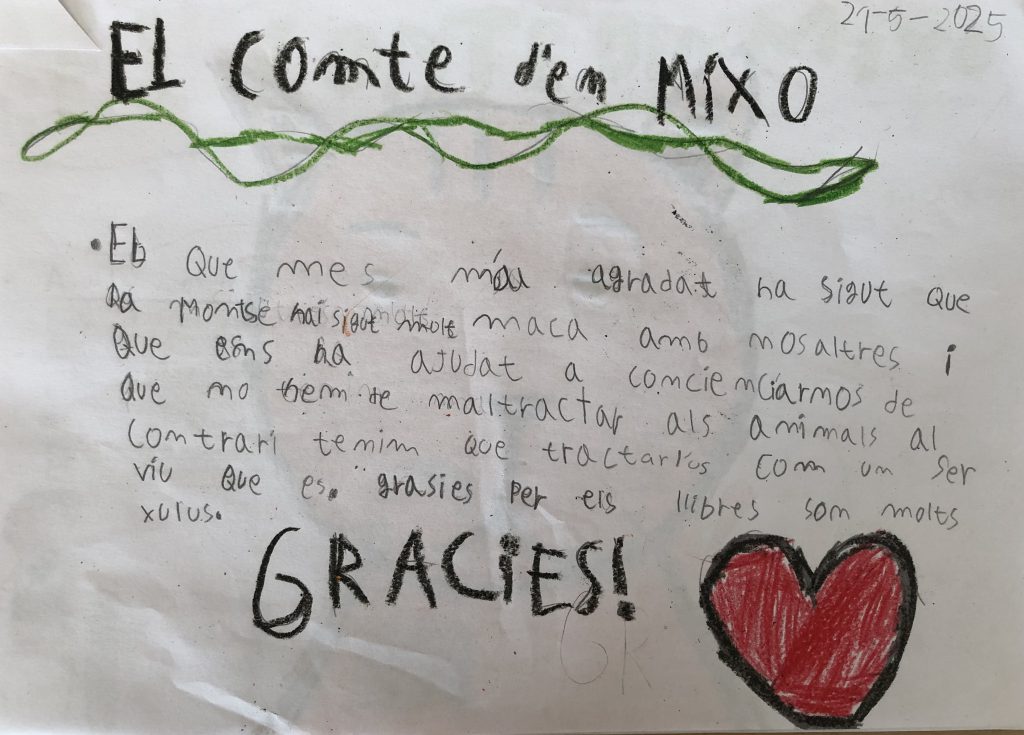 21-5-2025
EL Comte d'en MIXO
• El que mes m'au agradat ha sigut que
la Montse hai sigut molt maca amb nosaltres i
que ens ha ajudat a conciènciarnos de
que no hem de maltractar als animals al
contrari tenim que tractarlus com un ser
viu que es. grasies per els llibres son molts
xulus.
GRACIES!
GR